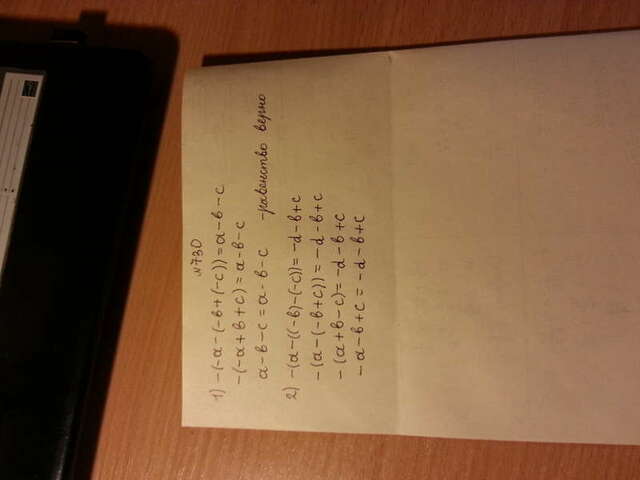 №730
1) -(-a-(-в+(-c))=a-в-c
-(-a+в+c)=a-в-c
a-в-c=a-в-c -равенство верно
2) -(a-((-в)-(-c))=-d-в+c
-(a-(-в+c))=-d-в+c
-(a+в-c)=-d-в+c
-a-в+c=-d-в+c